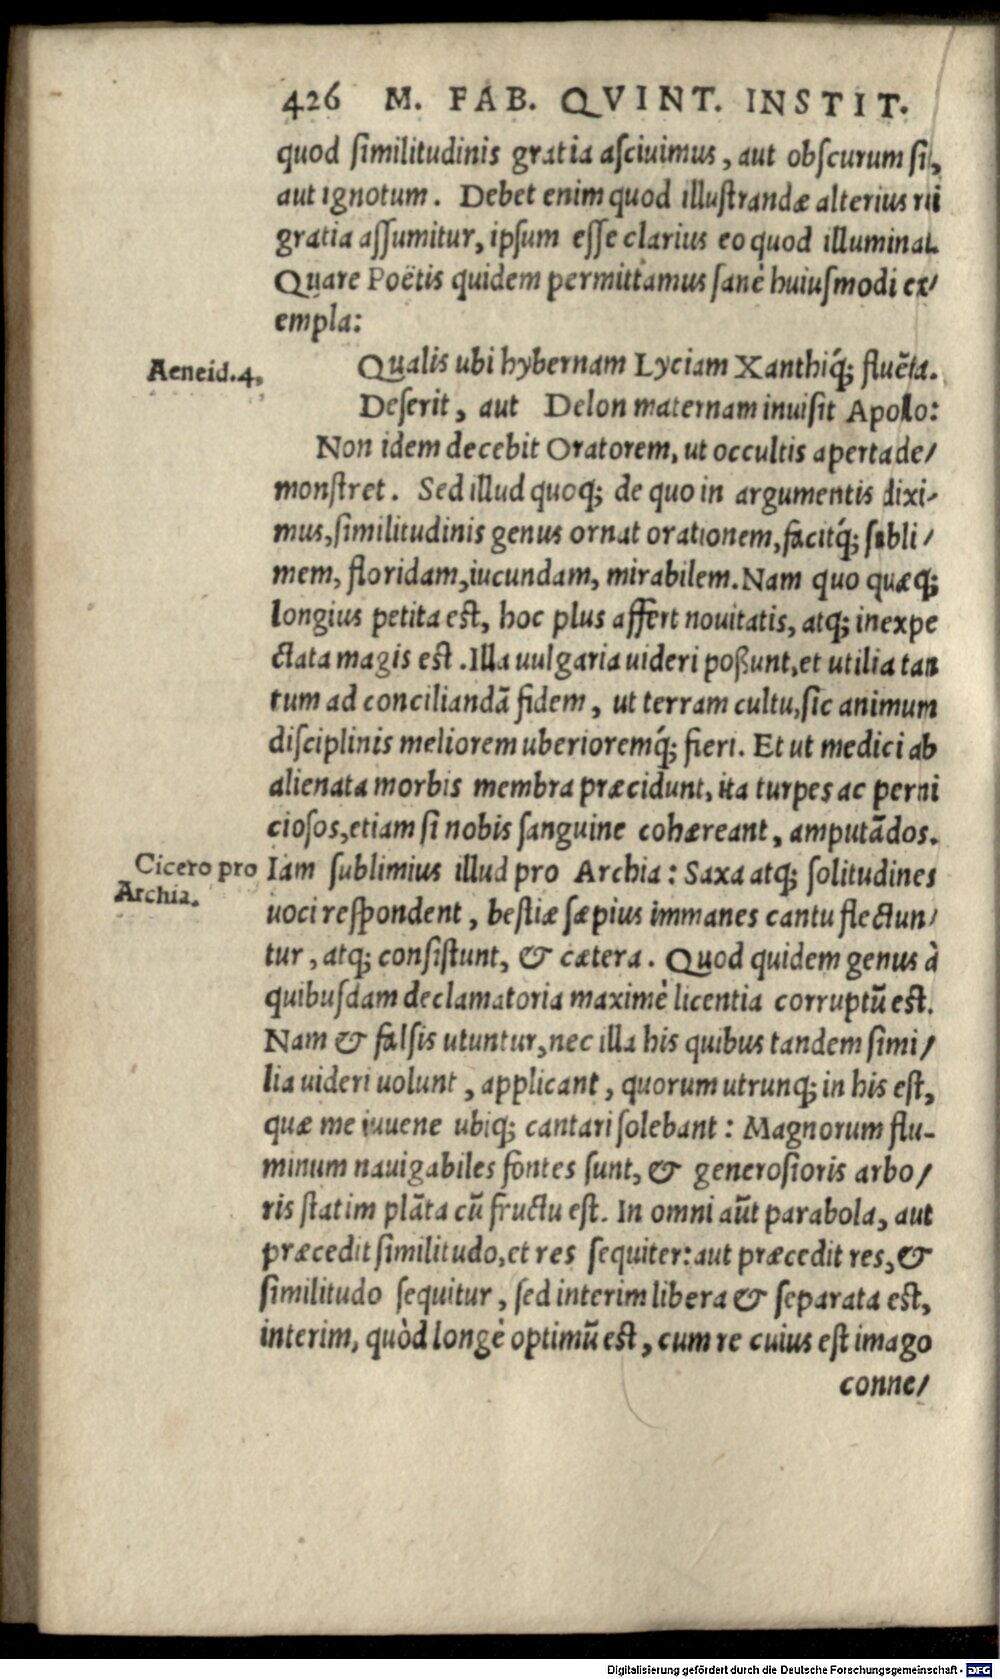 426 M. FAB. QVINT. INSTIT.
quod ſimilitudinis gratia aſciuimus, aut obſcurum ſit,
aut ignotum. Debet enim quod illuſtrandæ alterius rei
gratia aſſumitur, ipſum eſſe clarius eo quod illuminat.
Quare Poëtis quidem permittamus ſanè huiuſmodi ex/
empla:
Aeneid.4.
Qualis ubi hybernam Lyciam Xanthiq́; fluẽta.
Deſerit, aut Delon maternam inuiſit Apollo:
Non idem decebit Oratorem, ut occultis aperta de/
monſtret. Sed illud quoq; de quo in argumentis dixi-
mus, ſimilitudinis genus ornat orationem, facitq́; ſubli/
mem, floridam, iucundam, mirabilem. Nam quo quæq;
longius petita est, hoc plus affert nouitatis, atq; inexpe
ctata magis est. Illa uulgaria uideri poßunt, et utilia tan
tum ad conciliandã fidem, ut terram cultu, ſic animum
diſciplinis meliorem uberioremq́; fieri. Et ut medici ab
alienata morbis membra præcidunt, ita turpes ac perni
cioſos, etiam ſi nobis ſanguine cohæreant, amputãdos.
Cicero pro
Archia.
Iam ſublimius illud pro Archia: Saxa atq; ſolitudines
uoci reſpondent, beſtiæ ſæpius immanes cantu flectun/
tur, atq; conſiſtunt, & cætera. Quod quidem genus à
quibuſdam declamatoria maximè licentia corruptũ est.
Nam & falſis utuntur, nec illa his quibus tandem ſimi/
lia uideri uolunt, applicant, quorum utrunq; in his eſt,
quæ me iuuene ubiq; cantari ſolebant: Magnorum flu-
minum nauigabiles fontes ſunt, & generoſioris arbo/
ris ſtatim plãta cũ fructu eſt. In omni aũt parabola, aut
præcedit ſimilitudo, et res ſequiter: aut præcedit res, &
ſimilitudo ſequitur, ſed interim libera & ſeparata est,
interim, quòd longè optimũ est, cum re cuius eſt imago
conne/
Digitalisierung gefördert durch die Deutsche Forschungsgemeinschaft - DFG